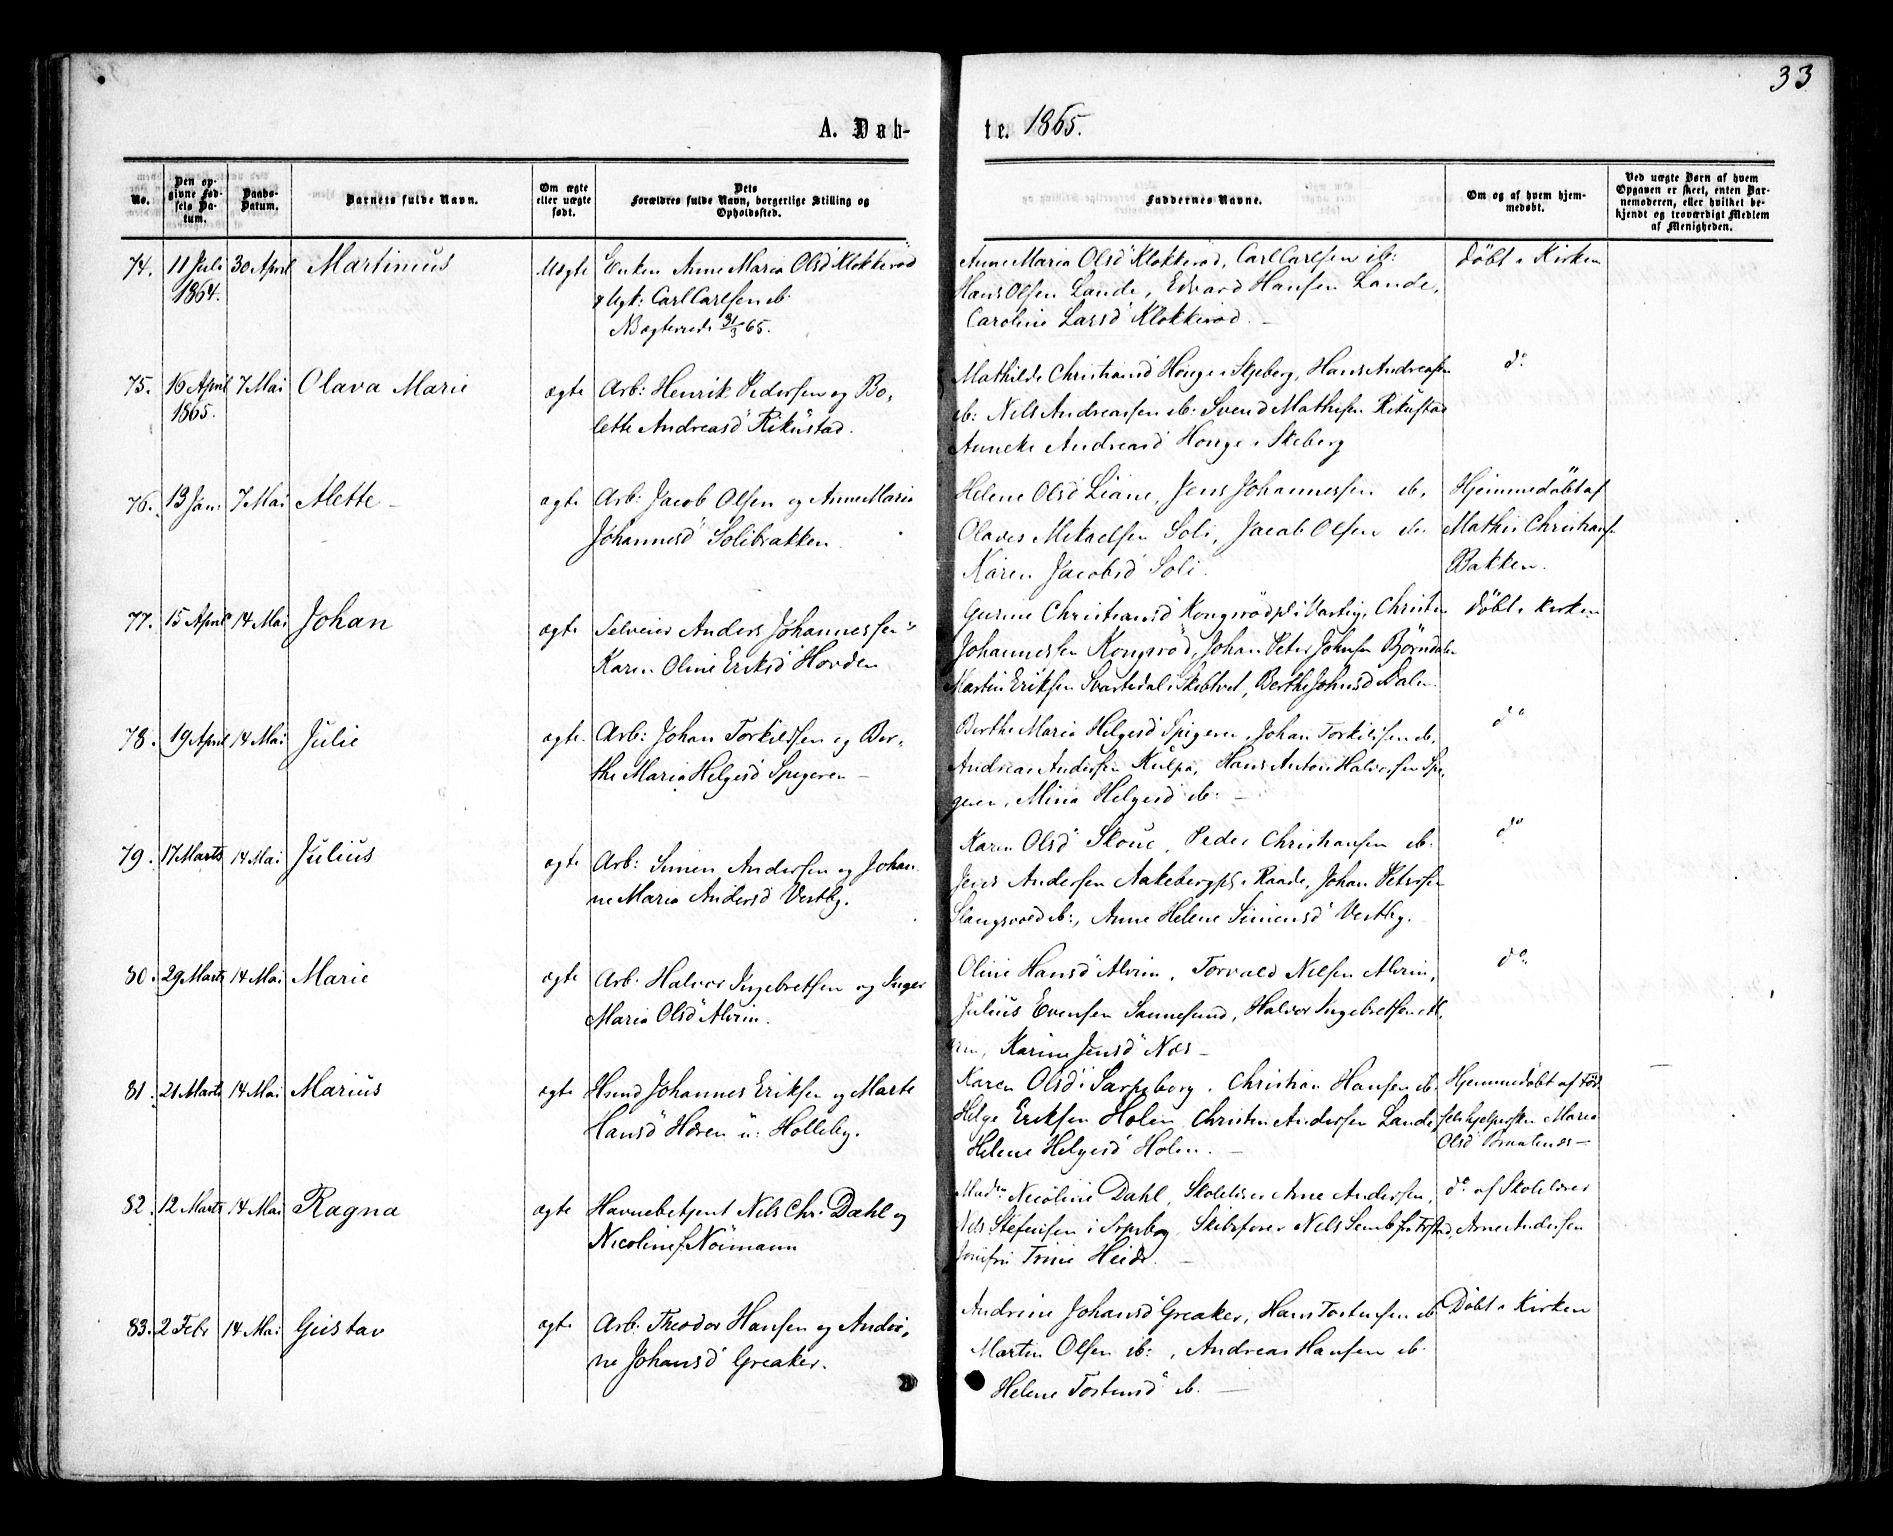 33
A. Døb-
te. 1865.
No.
Den op-
givne Fød-
sels Da-
tum.
Daabs-
Datum.
Barnets fulde Navn.
Om ægte
eller uægte
født.
Dets
Forældres fulde Navn, borgerlige Stilling og
Opholdssted.
Faddernes Navne.
Om og af hvem hjem-
medøbt.
Ved uægte Børn af hvem
Opgaven er skeet, enten Bar-
nemoderen, eller hvilket be-
kjendt og troværdigt Medlem
af Menigheden.
74. 11 Juli 30 April Martinius Uægte Enken Anne Maria Olsd Klokkerød
1864. & Ugk: Carl Carlsen ib.
NB ægteviede 31/3 65.
Anne Maria Olsd Klokkerød, Carl Carlsen ib: Døbt i Kirken
Hans Olsen Lande, Edvard Hansen Lande,
Caroline Larsd Klokkerød. —
75. 16 April 7 Mai Olava Marie ægte Arb: Henrik Pedersen og Bo-
1865. lette Andreasd Rikustad.
Mathilde Christiansd Houge i Skjeberg, Hans Andreassen do
ib: Nels Andreassen ib: Svend Mathisen Rikustad
Anneke Andreasd Houge i Skeberg
76. 13 Jan: 7 Mai Alette — ægte Arb: Jacob Olsen og Anne Maria
Johannesd Solibrakken.
Helene Olsd Liane, Jens Johannessen ib. Hjemmedøbt af
Olaves Mikaelsen Soli, Jacob Olsen ib. Mathis Christians
Karen Jacobsd Soli. Bakken.
77. 15 April 14 Mai Johan ægte Selveier Anders Johannessen &
Karen Oline Eriksd Hovden
Gurine Christiansd Kongsrødpl i Varteig, Christen Døbt i Kirken
Johannessen Kongsrød, Johan Peter Johnsen Bjørndalen
Martin Eriksen Svartedal i Skibtvet, Berthe Johnsd Dalen
78. 19 April 14 Mai Julie ægte. Arb: Johan Torkildsen og Ber-
the Maria Helgesd Spigeren —
Berthe Maria Helgesd Spigeren, Johan Torkildsen ib. do
Andreas Andersen Kulpe, Hans Anton Halvorsen Spi-
geren, Mina Helgesd ib: —
79. 17 Marts 14 Mai Julius ægte Arb: Simen Andersen og Johan
ne Maria Andersd Vestby.
Karen Olsd Skoue, Peder Christiansen ib. do
Jens Andersen Aakebergpl i Raade, Johan Petersen
Slangsvold ib:, Anne Helene Simensd Vestby.
80. 29 Marts 14 Mai Marie ægte Arb. Halvor Ingebretsen og Inger
Maria Olsd Alvim.
Oline Hansd Alvim, Torvald Nelsen Alvim, do
Julius Evensen Sannesund, Halvor Ingebretsen Al-
vim, Karine Jensd Næs —
81. 21 Marts 14 Mai Marius ægte Hsmd Johannes Eriksen og Marte
Hansd Hæren u: Holleby.
Karen Olsd i Sarpsborg. Christian Hansen ib. Hjemmedøbt af Fød-
Helge Eriksen Holen, Christen Andersen Lande, selshjelpersken Maria
Helene Helgesd Holen. — Olsd Braatenes —
82. 12 Marts 14 Mai Ragna ægte Havnebetjent Nels Chr. Dahl og
Nicoline f. Nöimann
Mad. Nicoline Dahl, Skolelærer Arne Andersen, do af Skolelærer
Nels Stefensen i Srpsbog, Skibsfører Nels Semb fr Fr.stad, Arne Andersen
Jomfru Trine Heide. —
83. 2 Febr 14 Mai Gustav ægte Arb: Theodor Hansen og Andri-
ne Johansd Greaker.
Andrine Johansd Greaker, Hans Tostensen ib Døbt i Kirken
Martin Olsen ib: , Andreas Hansen ib.
Helene Tostensd ib. —